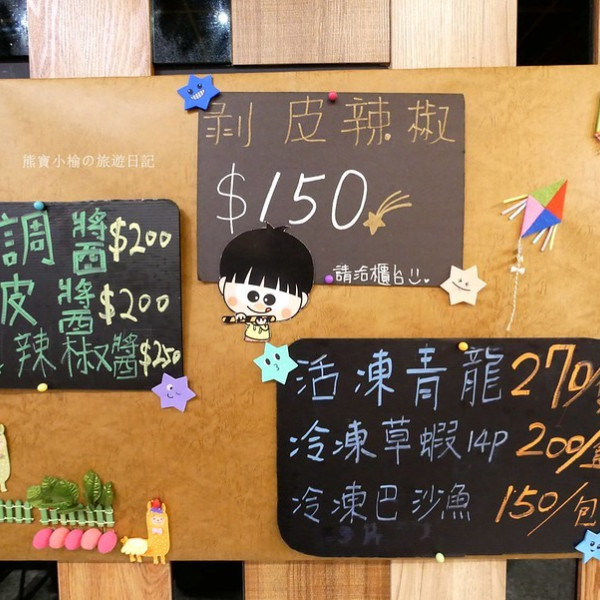 熊寶小榆の旅遊日記
剝皮辣椒
$150
請洽櫃台
調醬$200
皮醬$200
辣椒醬$250
活凍青龍270/
冷凍草蝦14P 200/盒
冷凍巴沙魚 150/包